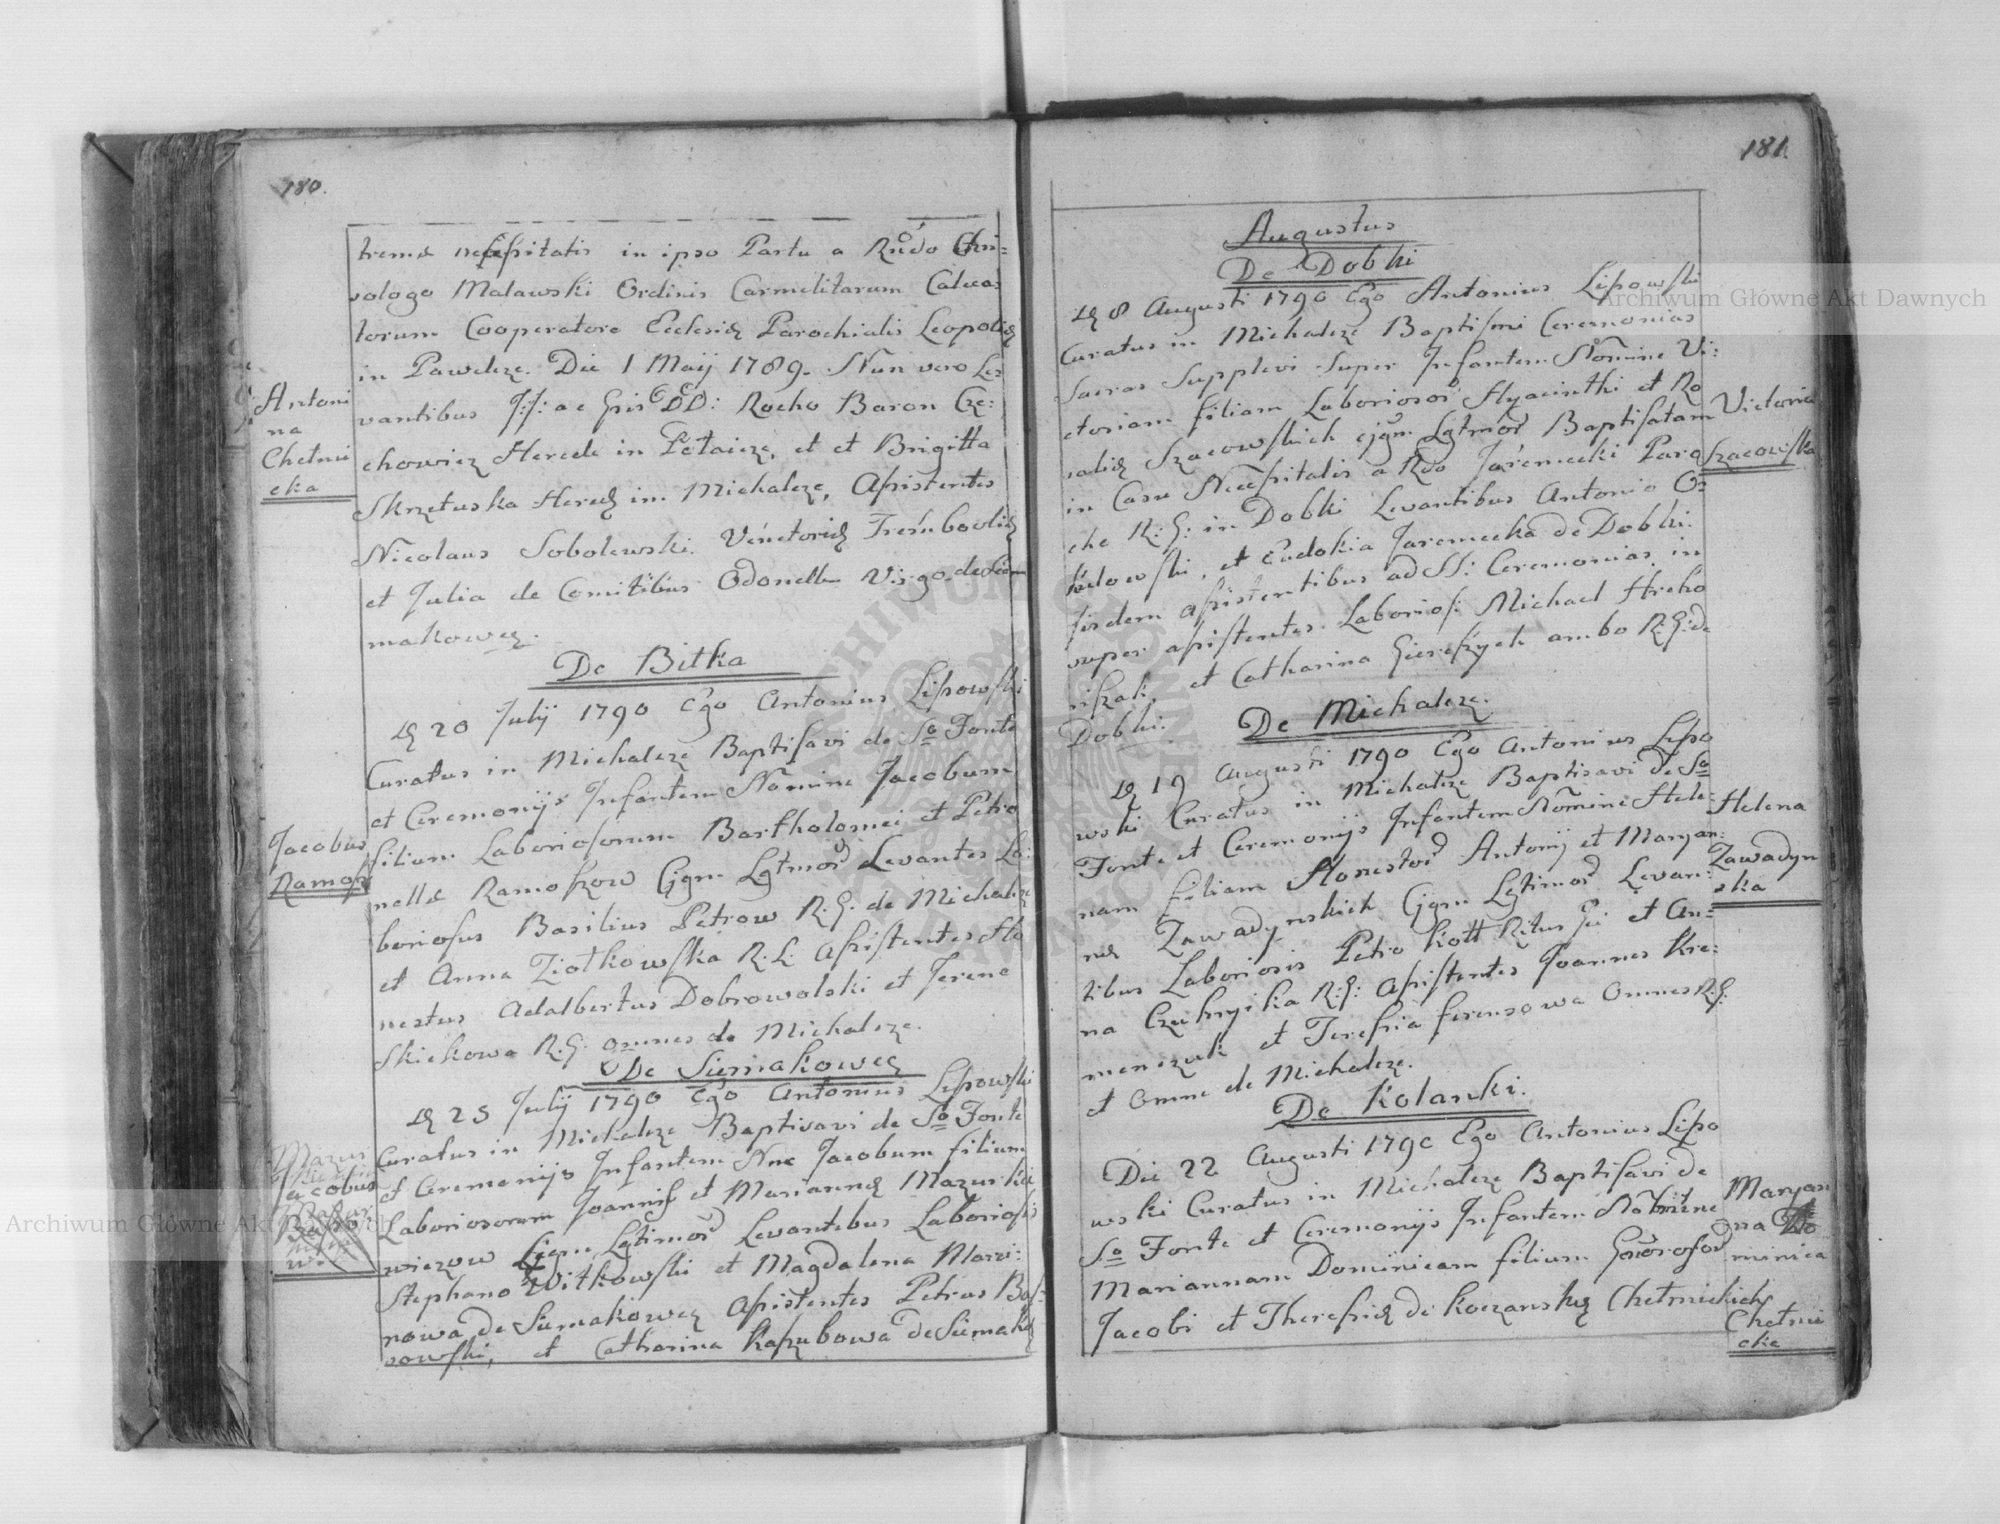 180.
tremæ necessitatis in ipso Partu a Rndo Chri=
sologo Malawski Ordinis Carmelitarum Calcea
torum Cooperatore Ecclesiæ Parochialis Leopoliæ
in Pawelcze. Die 1 Maij 1789. Nun vero Le
vantibus ac DD: Rocho Baron Cze:
chowicz Herede in Petaicze, et et Brigitta
Skrzetuska Heredæ in Michalcze, Assistentes
Nicolaus Sobolewski Venetoriæ Trembovliæ
et Julia de Comitibus Odonell Virgo de Siem
makowcę.
Antoni
na
Chełmi
cka
De Bitka
Dę 20 Julij 1790 Ego Antonius Lipowski
Curatus in Michalcze Baptisavi de So Fonte
et Ceremonijs Infantem Nomine Jacobum
filium Laboriosorum Bartholomei et Petro
nellæ Ramoszow Cjgm Lgtmor Levantes La:
boriosus Basilius Petrow R.G. de Michalcze
et Anna Ziołkowska R.L. Assistentes Ho
nestus Adalbertus Dobrowolski et Jrene
Skickowa R.G. omnes de Michalcze.
Jacobus
Ramosz
De Siemakowce
Dę 25 Julij 1790 Ego Antonius Lipowski
Curatus in Michalcze Baptisavi de So Fonte
et Ceremonijs Infantem Nne Jacobum filium
Laboriosorum Joannis et Mariannæ Mazurkie
wiczow Cjgm Lgtimor Levantibus Laboriosis
Stephano Witkowski et Magdalena Marci:
nowa de Siemakowcę Assistentes Petrus Bas
sowski, et Catharina Kaszubowa de Siemakę
Mazur
Jacobus
181
Augustus
De Dobki
Dę 8 Augusti 1790 Ego Antonius Lipowski
Curatus in Michalcze Baptismi Ceremonias
Sacras Supplevi Super Infantem Nomine Vi:
ctoriam filiam Laboriosor Hyacinthi et Ro
saliæ Szacowskich cjgm Lgtmor Baptisatam
in Casu Necessitatis a Rdo Jaremecki Paro
cho R.G. in Dobki Levantibus Antonio Os
sledowski, et Eudokia Jaremecka de Dobki.
Jisdem assistentibus ad SS: Ceremonias in
super assistentes Laborios: Michael Hreho
riszak, et Catharina Gierefzych ambo R.G. de
Dobki.
Victoria
Szacowska
De Michalcze.
Dę 19 Augusti 1790 Ego Antonius Lipo
wski Curatus in Michalcze Baptisavi de So
Fonte et Ceremonijs Infantem Nomine Hele:
nam filiam Honestor Antonij et Maryan:
næ Zawadynskich Cjgm Lgtimor Levan:
tibus Laboriosis Petro Kott Ritus Gci et An=
na Czuhryika R.G: Assistentes Joannes Kre:
menczuk et Teressia ferensowa Omnes R.G.
et Omne de Michalcze.
Helena
Zawadyn
ska
De Kolanki.
Die 22 Augusti 1790 Ego Antonius Lipo
wski Curatus in Michalcze Baptisavi de
So Fonte et Ceremonijs Infantem Nomine
Mariannam Dominicam filium Gnorosor
Jacobi et Theressiæ de Koczanskę Chełmickich
Maryan
na Do
minica
Chełmi
cka
Archiwum Główne Akt Dawnych
Archiwum Główne Akt Dawnych